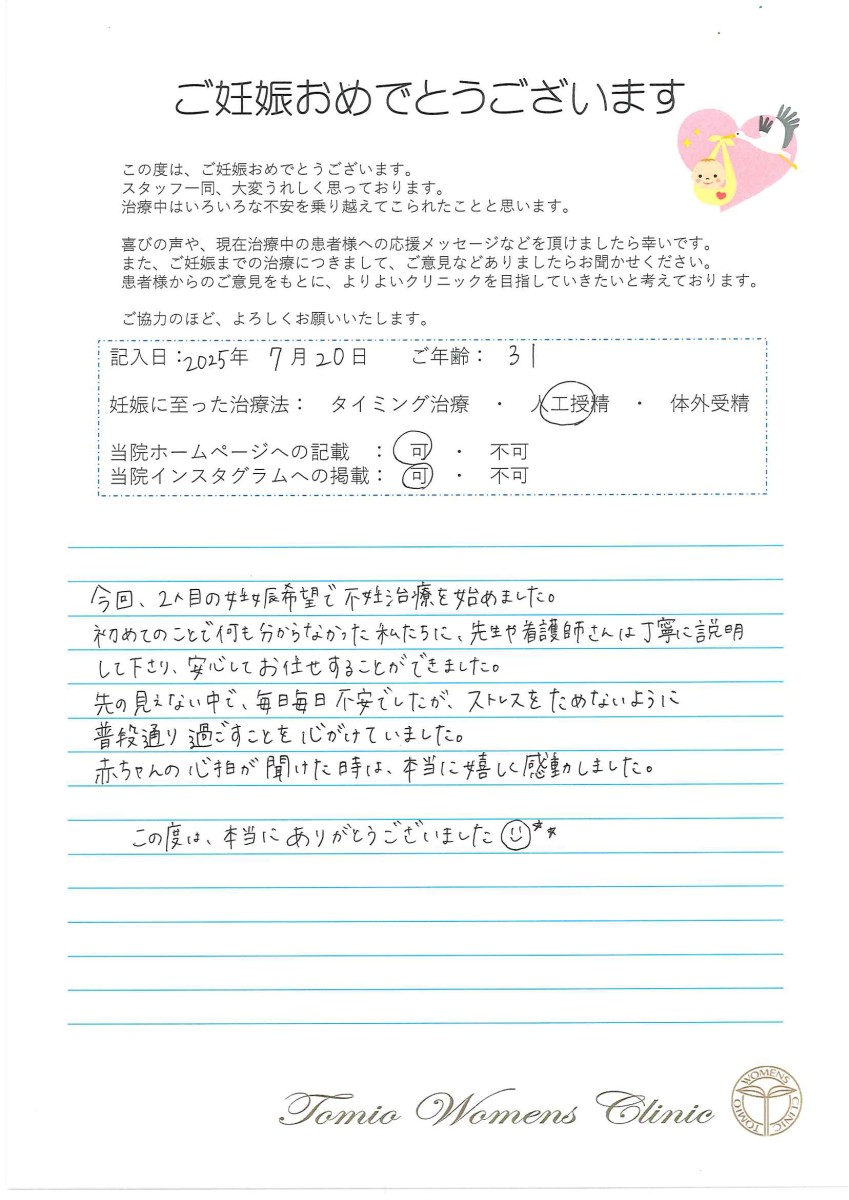 ご妊娠おめでとうございます
この度は、ご妊娠おめでとうございます。
スタッフ一同、大変うれしく思っております。
治療中はいろいろな不安を乗り越えてこられたことと思います。
喜びの声や、現在治療中の患者様への応援メッセージなどを頂けましたら幸いです。
また、ご妊娠までの治療につきまして、ご意見などありましたらお聞かせください。
患者様からのご意見をもとに、よりよいクリニックを目指していきたいと考えております。
ご協力のほど、よろしくお願いいたします。
記入日：2025年 7月20日 ご年齢： 31
妊娠に至った治療法： タイミング治療 ・ 人工授精 ・ 体外受精
当院ホームページへの記載 ： 可 ・ 不可
当院インスタグラムへの掲載： 可 ・ 不可
今回、2人目の妊娠希望で不妊治療を始めました。
初めてのことで何も分からなかった私たちに、先生や看護師さんは丁寧に説明
して下さり、安心してお任せすることができました。
先の見えない中で、毎日毎日不安でしたが、ストレスをためないように
普段通り過ごすことを心がけていました。
赤ちゃんの心拍が聞けた時は、本当に嬉しく感動しました。
この度は、本当にありがとうございました
Tomio Womens Clinic
TOMIO WOMENS CLINIC